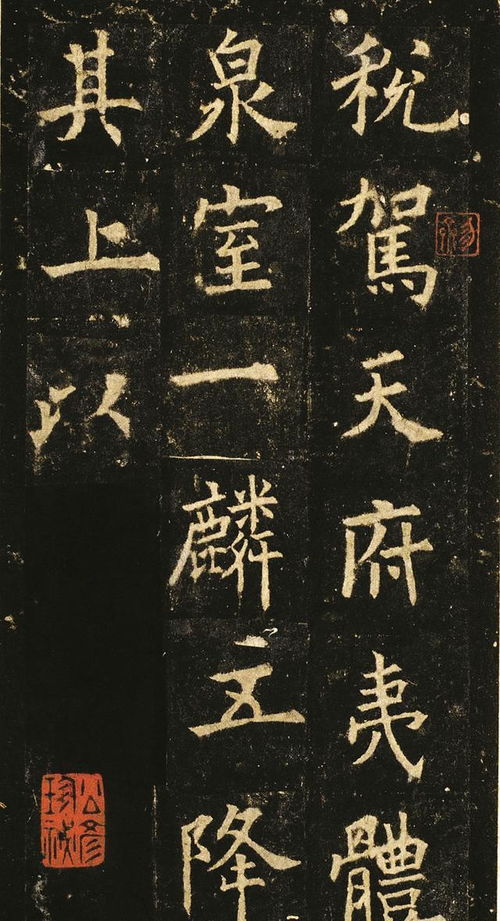 稅駕天府夷體
泉室一麟五降
其上以